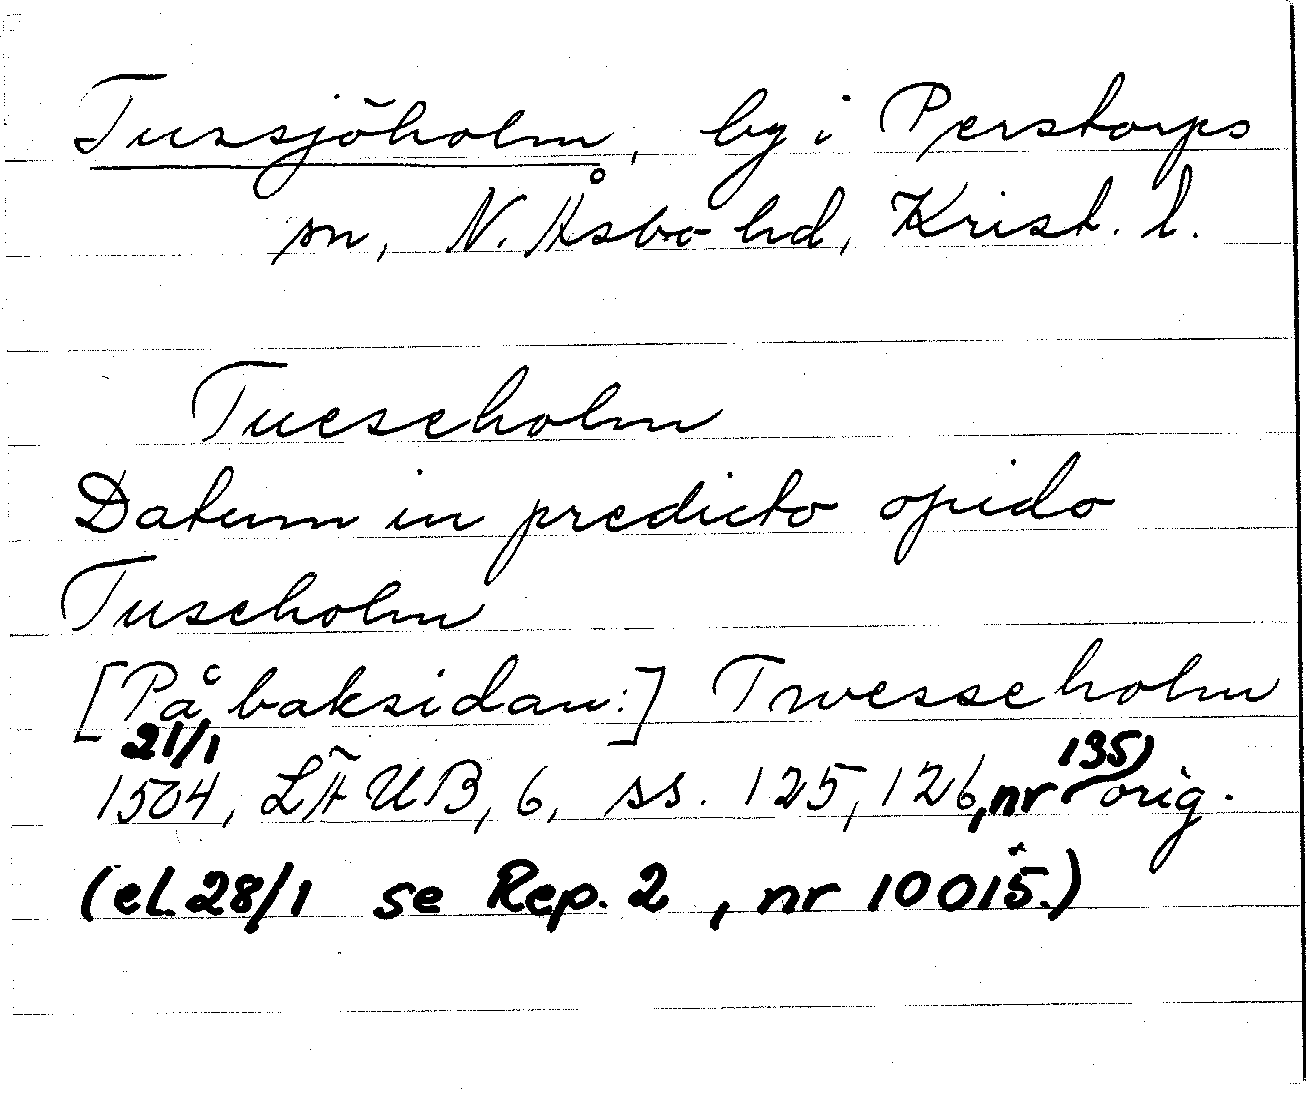 Tussjöholm, by i Perstorps
sn, N. Åsbo hd, Krist. l.
Tueseholm
Datum in predicto opido
Tuseholm
[På baksidan:] Twesseholm
21/1
1504, LÄUB, 6, ss. 125, 126, nr 135) orig.
(el. 28/1 se Rep. 2, nr 10015.)